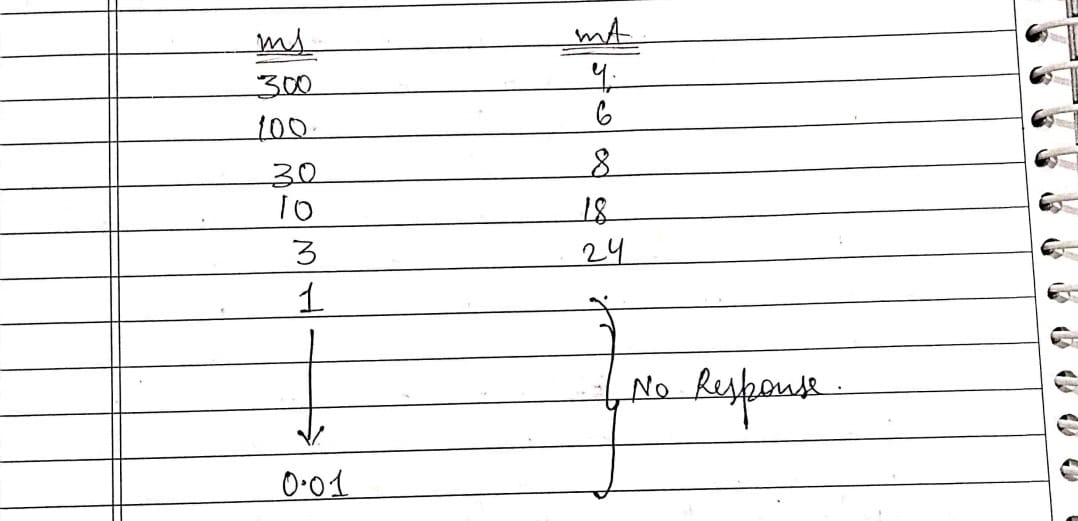 ms mA
300 4
100 6
30 8
10 18
3 24
1
No Response.
0.01